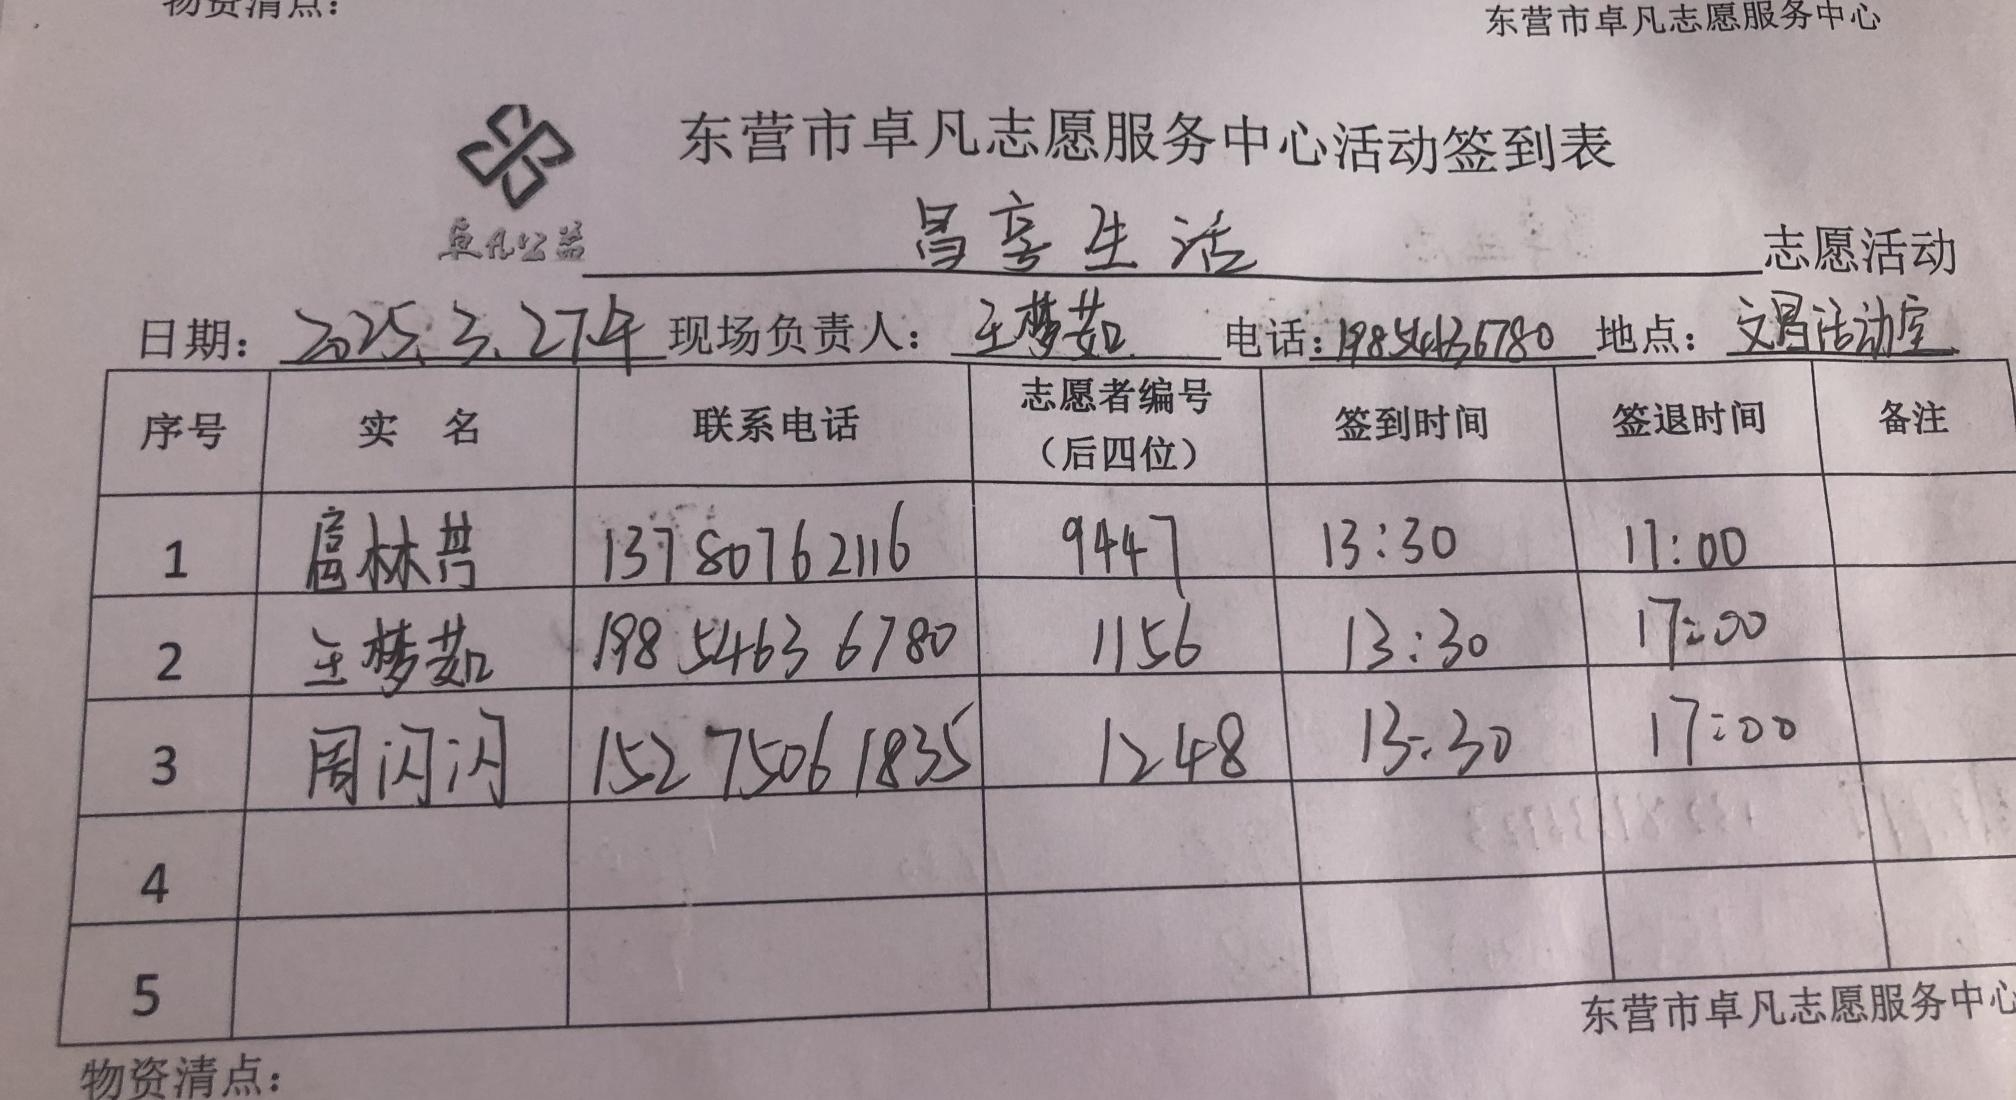 物资清点：
东营市卓凡志愿服务中心
东营市卓凡志愿服务中心活动签到表
卓凡公益
昌享生活 志愿活动
日期：2025.3.27下午 现场负责人：王梦茹 电话：19854636780 地点：文昌活动室
序号 实 名 联系电话 志愿者编号（后四位） 签到时间 签退时间 备注
1 扈林芳 13780762116 9447 13:30 17:00
2 王梦茹 19854636780 1156 13:30 17:00
3 周闪闪 15275061835 1248 13:30 17:00
4
5
东营市卓凡志愿服务中心
物资清点：